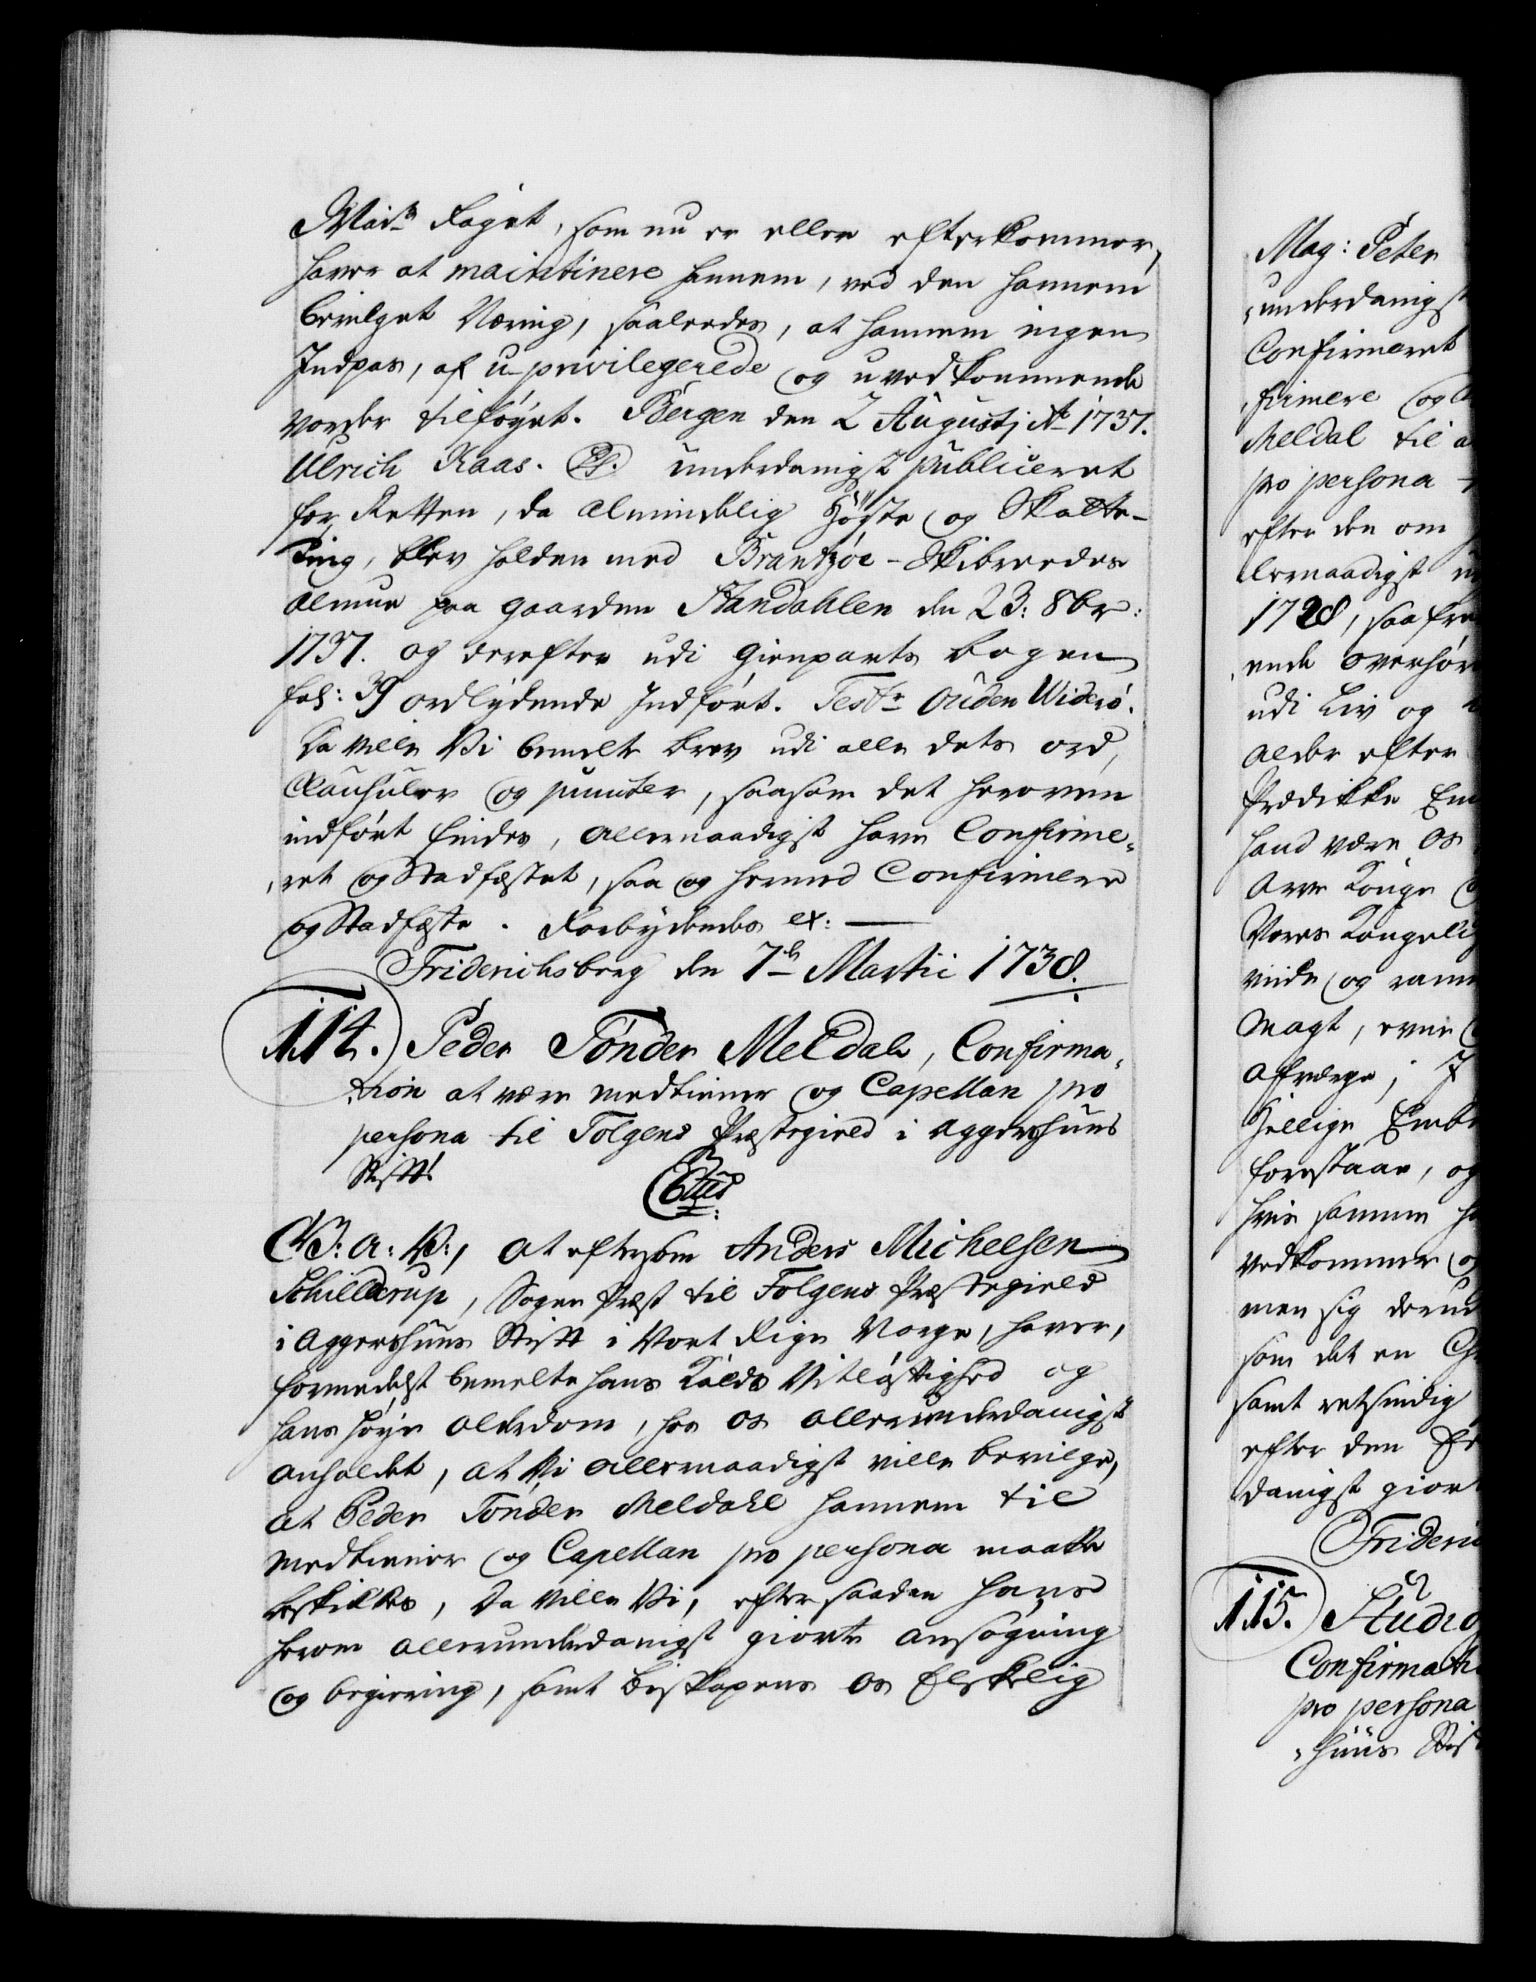 Maits Foget, som nu er eller efterkommer,
haver at maintinere hannem, ved den hannem
bevilget Næring, saaledes, at hannem ingen
Indpas, af u-privilegerede og uvedkommende
vorder tilføyet. Bergen den 2 Augustj Ao 1737.
Ulrich Kaas. underdanigst publiceret
for Retten, da almindelig Høste og Skatte-
ting, blev holden med Brantzøe-Skibreedes
almue paa gaarden Handahlen den 23: 8br:
1737. og derefter udi gienparts bogen
fol: 39 ordlydende Indført. Testr Ouden Widerö.
Da ville Vi bemelte brev udi alle dets ord,
Clausuler og puncter, saasom det heroven
indført findes, allernaadigst have Confirme-
ret og Stadfæstet, saa og hermed Confirmere
og Stadfæste. Forbydendes etc:
Friderichsberg den 7de Martii 1738.
114. Peder Tönder Meldal, Confirma-
tion at være medtiener og Capellan pro
persona til Tolgens Præstegield i Aggershuus
Stift!
C6tus
V: G: A: V:, at eftersom Anders Micheelsen
Schilderup, Sogne Præst til Tolgens Præstegield
i Aggershuus Stift i Vort Rige Norge, haver,
formedelst bemelte hans Kalds Vitløftighed og
hans høye alderdom, hos os allerunderdanigst
anholdet, at Vi allernaadigst ville bevilge,
at Peder Tönder Meldahl hannem til
medtiener og Capellan pro persona maatte
beskikkes, Da ville Vi, efter saadan hans
herom allerunderdanigst giorte ansøgning
og begiering, samt Biskopens os Elskelig
Mag: Peter
underdanigst
Confirmeret
firmere og
Meldal til
pro persona
efter den om
allernaadigst
1728, saa frem
ende overhør
udi Liv og
alder efter
Prædikke Em
hand være os
Arve Konge
Vores Kongelig
viide og ramme
magt, evne
afværge; I
Hellige Embe
forestaae, og
hvis samme
vedkommer og
men sig derud
som det en Ch
samt retsindig
efter den
danigst giort
Frideric
115. Studio
Confirmati
pro persona
huus Stif